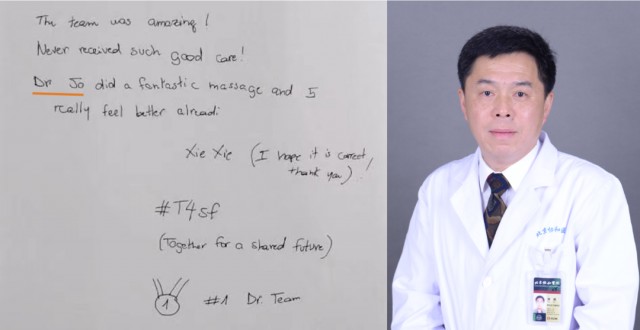 The team was amazing!
Never received such good care!
Dr Jo did a fantastic massage and I
really feel better alreadi
Xie Xie (I hope it is correct,
thank you)!
#T4sf
(Together for a shared future)
1
#1 Dr. Team